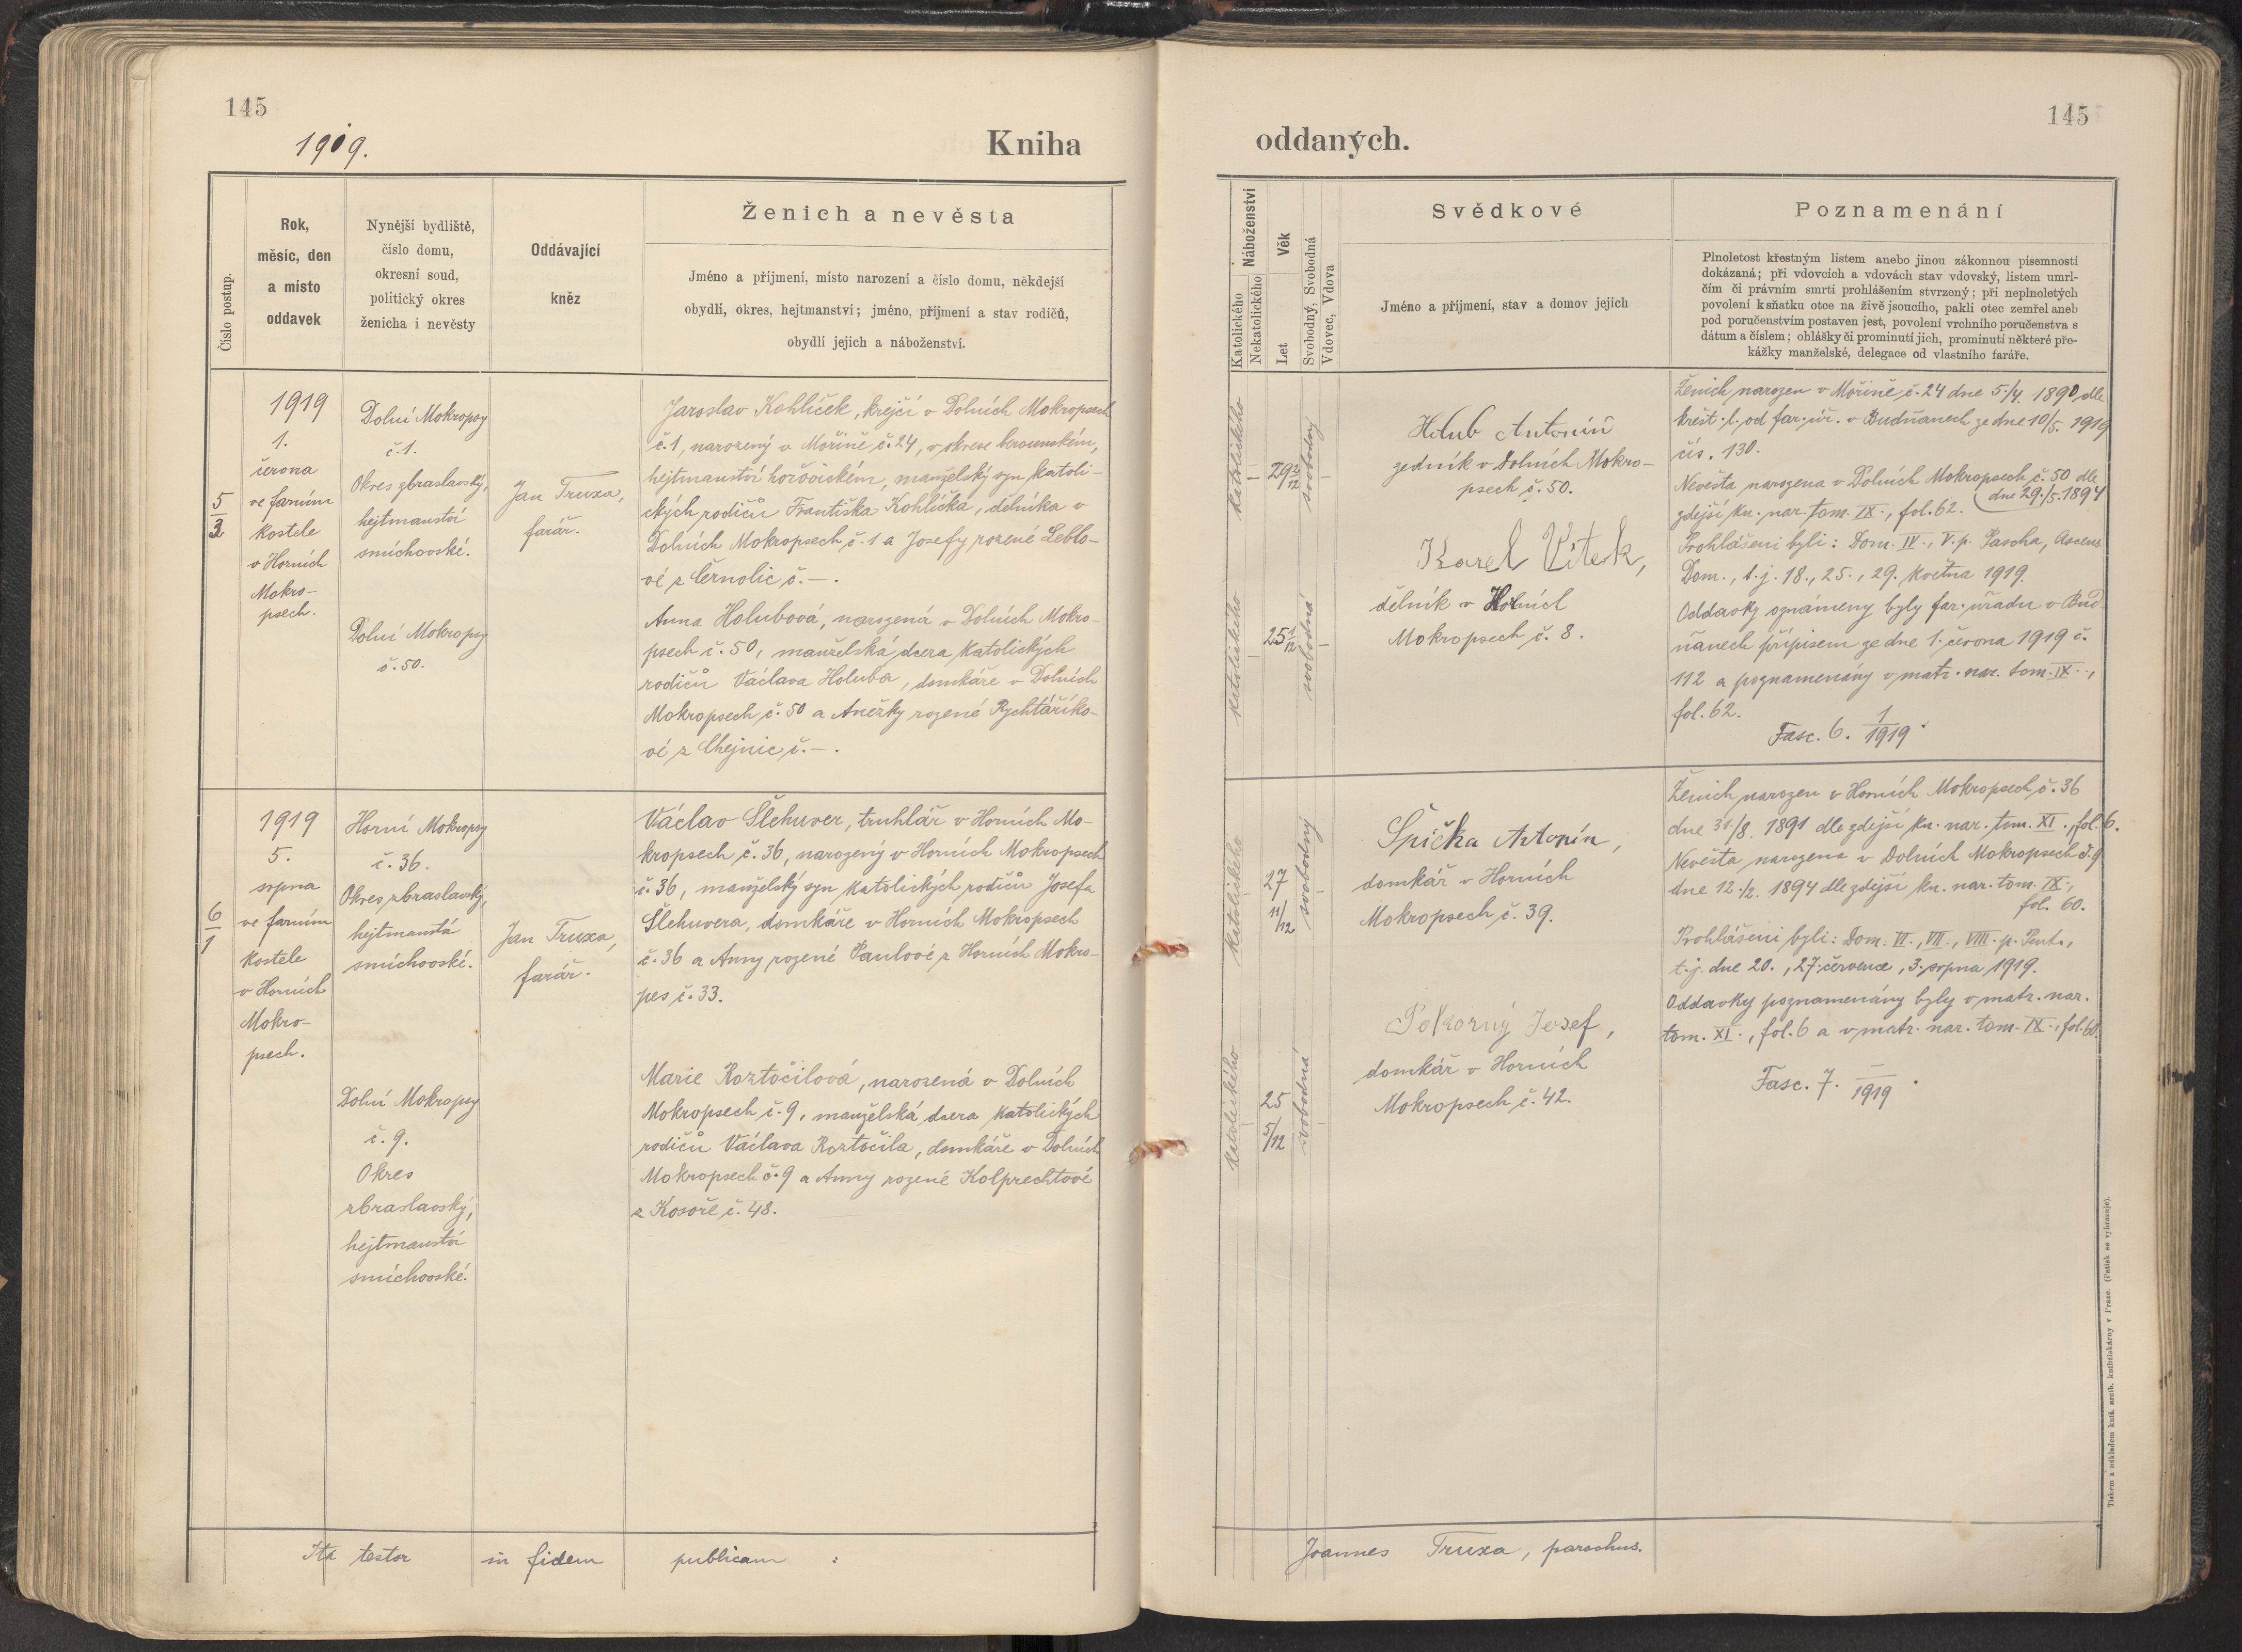 145
1919.
Kniha
Číslo postup.
Rok,
měsíc, den
a místo
oddavek
Nynější bydliště,
číslo domu,
okresní soud,
politický okres
ženicha i nevěsty
Oddávající
kněz
Ženich a nevěsta
Jméno a příjmení, místo narození a číslo domu, někdejší
obydlí, okres, hejtmanství; jméno, příjmení a stav rodičů,
obydlí jejich a náboženství.
5
3
1919
1.
června
ve farním
kostele
v Horních
Mokro-
psech.
Dolní Mokropsy
č. 1.
Okres zbraslavský,
hejtmanství
smíchovské.
Dolní Mokropsy
č. 50.
Jan Truxa,
farář.
Jaroslav Kohlíček, krejčí v Dolních Mokropsech
č. 1, narozený v Mořině č. 24, v okrese berounském,
hejtmanství hořovickém, manželský syn katoli-
ckých rodičů Františka Kohlíčka, dělníka v
Dolních Mokropsech č. 1 a Josefy rozené Leblo-
vé z Černolic č. —.
Anna Holubová, narozená v Dolních Mokro-
psech č. 50, manželská dcera katolických
rodičů Václava Holuba, domkáře v Dolních
Mokropsech č. 50 a Anežky rozené Rychtaříko-
vé z Chejnic č. —.
6
1
1919
5.
srpna
ve farním
kostele
v Horních
Mokro-
psech.
Horní Mokropsy
č. 36.
Okres zbraslavský,
hejtmanství
smíchovské.
Dolní Mokropsy
č. 9.
Okres
zbraslavský,
hejtmanství
smíchovské.
Jan Truxa,
farář.
Václav Šlehuver, truhlář v Horních Mo-
kropsech č. 36, narozený v Horních Mokropsech
č. 36, manželský syn katolických rodičů Josefa
Šlehuvera, domkáře v Horních Mokropsech
č. 36 a Anny rozené Paulové z Horních Mokro-
pes č. 33.
Marie Roztočilová, narozená v Dolních
Mokropsech č. 9, manželská dcera katolických
rodičů Václava Roztočila, domkáře v Dolních
Mokropsech č. 9 a Anny rozené Kolprechtové
z Kosoře č. 48.
Ita testor in fidem publicam :
145
oddaných.
Náboženství
Katolického
Nekatolického
Věk
Let
Svobodný, Svobodná
Vdovec, Vdova
Svědkové
Jméno a příjmení, stav a domov jejich
Poznamenání
Plnoletost křestným listem anebo jinou zákonnou písemností
dokázaná; při vdovcích a vdovách stav vdovský, listem umrl-
čím či právním smrti prohlášením stvrzený; při neplnoletých
povolení k sňatku otce na živě jsoucího, pakli otec zemřel aneb
pod poručenstvím postaven jest, povolení vrchního poručenstva s
dátum a číslem; ohlášky či prominutí jich, prominutí některé pře-
kážky manželské, delegace od vlastního faráře.
katolického
29 2/12
svobodný
katolického
25 1/12
svobodná
Holub Antonín
zedník v Dolních Mokro-
psech č. 50.
Karel Vítek,
dělník v Horních
Mokropsech č. 8.
Ženich narozen v Mořině č. 24 dne 5./4. 1890 dle
křest. l. od far. úř. v Budňanech ze dne 10/5. 1919
čís. 130.
Nevěsta narozena v Dolních Mokropsech č. 50 dle
dne 29./5. 1894
zdejší kn. nar. tom. IX., fol. 62.
Prohlášeni byli: Dom. IV., V. p. Pascha, Ascens.
Dom., t. j. 18., 25., 29. května 1919.
Oddavky oznámeny byly far. úřadu v Bud-
ňanech přípisem ze dne 1. června 1919 č.
112 a poznamenány v matr. nar. tom. IX.,
fol. 62.
Fasc. 6. 1/1919.
katolického
27
11/12
svobodný
katolického
25
5/12
svobodná
Špička Antonín,
domkář v Horních
Mokropsech č. 39.
Pokorný Josef,
domkář v Horních
Mokropsech č. 42.
Ženich narozen v Horních Mokropsech č. 36
dne 31./8. 1891 dle zdejší kn. nar. tom. XI., fol. 6.
Nevěsta narozena v Dolních Mokropsech č. 9
dne 12./2. 1894 dle zdejší kn. nar. tom. IX.,
fol. 60.
Prohlášeni byli: Dom. VI., VII., VIII. p. Pent.,
t. j. dne 20., 27. července, 3. srpna 1919.
Oddavky poznamenány byly v matr. nar.
tom. XI., fol. 6 a v matr. nar. tom. IX., fol. 60.
Fasc. 7. —/1919.
Joannes Truxa, parochus.
Tiskem a nákladem kníž. arcib. knihtiskárny v Praze. (Patisk se vyhrazuje).